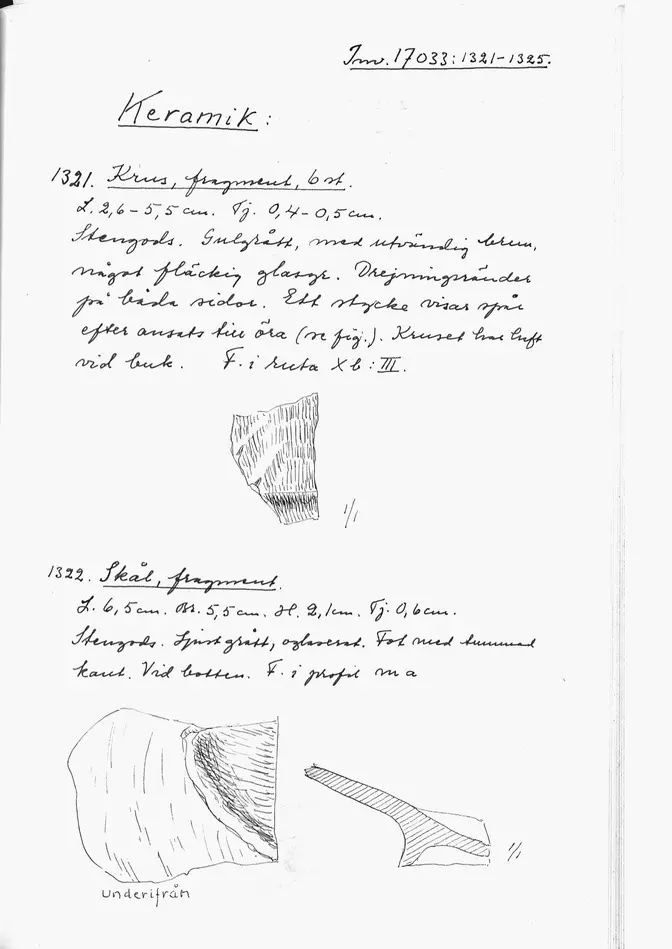 Inv. 17033:1321-1325.
Keramik:
1321. Krus, fragment, 6 st.
L. 2,6 - 5,5 cm. Tj. 0,4 - 0,5 cm.
Stengods. Gulgrått, med utvändig brun,
något fläckig glasyr. Drejningsränder
på båda sidor. Ett stycke visar spår
efter ansats till öra (se fig.). Kruset har haft
vid buk. F. i ruta X b : III.
1/1
1322. Skål, fragment.
L. 6,5 cm. Br. 5,5 cm. H. 2,1 cm. Tj. 0,6 cm.
Stengods. Ljust grått, oglaserat. Fot med tummad
kant. Vid botten. F. i profil m a
1/1
underifrån